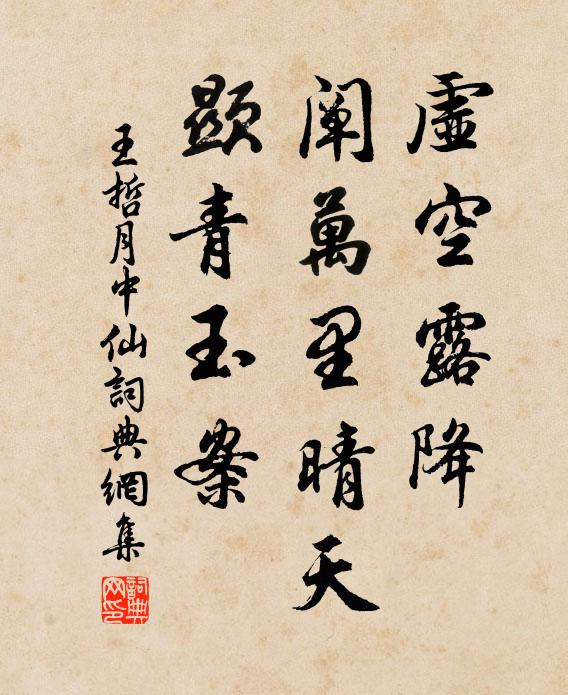 虛空露降
闡萬里晴天
顯青玉案
王哲月中仙詞典網集
詞典网印